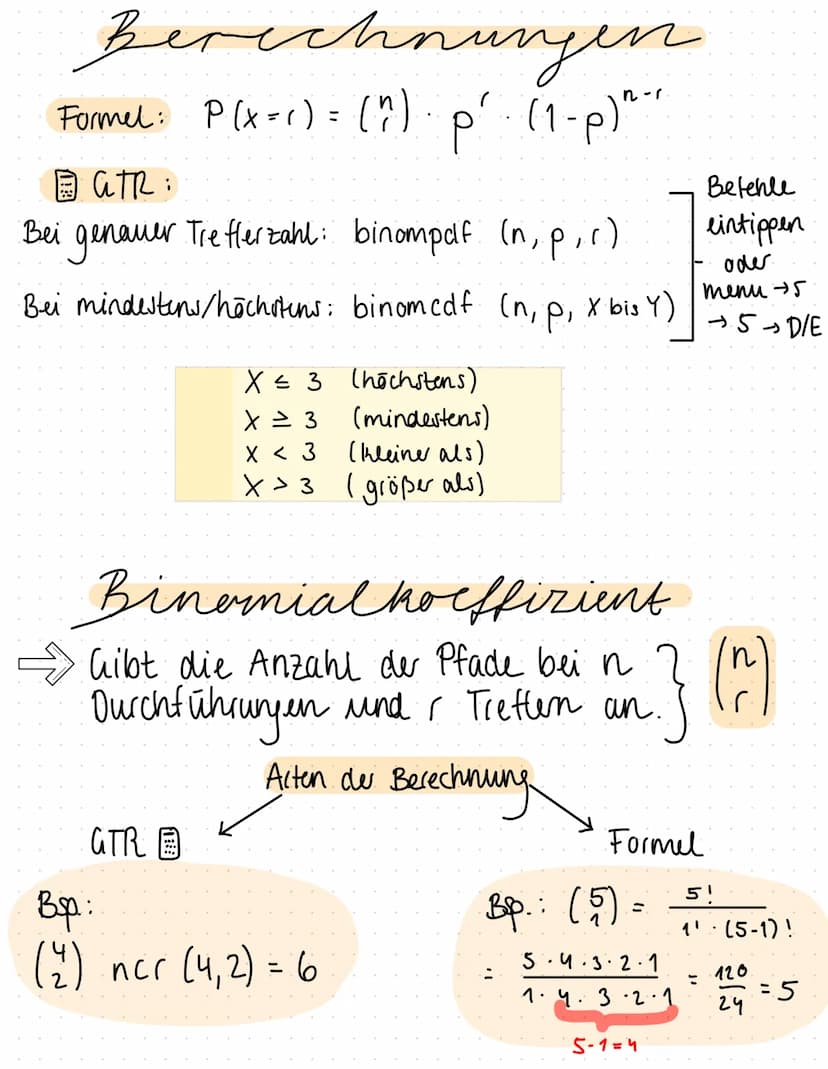 Berechnungen
Formel: P(x=r) = (n r) · p^r · (1-p)^n-r
GTR:
Bei genauer Trefferzahl: binompdf (n, p, r)
Bei mindestens/höchstens: binomcdf (n, p, X bis Y)
Befehle
eintippen
oder
menu → 5
→ 5 → D/E
X ≤ 3 (höchstens)
X ≥ 3 (mindestens)
X < 3 (kleiner als)
X > 3 (größer als)
Binomialkoeffizient
⇒ Gibt die Anzahl der Pfade bei n
Durchführungen und r Treffern an. } (n r)
Arten der Berechnung
GTR
Bsp.:
(4 2) ncr (4,2) = 6
Formel
Bsp.: (5 1) = 5! / 1! · (5-1)!
= 5·4·3·2·1 / 1·4·3·2·1 = 120/24 = 5
5-1=4